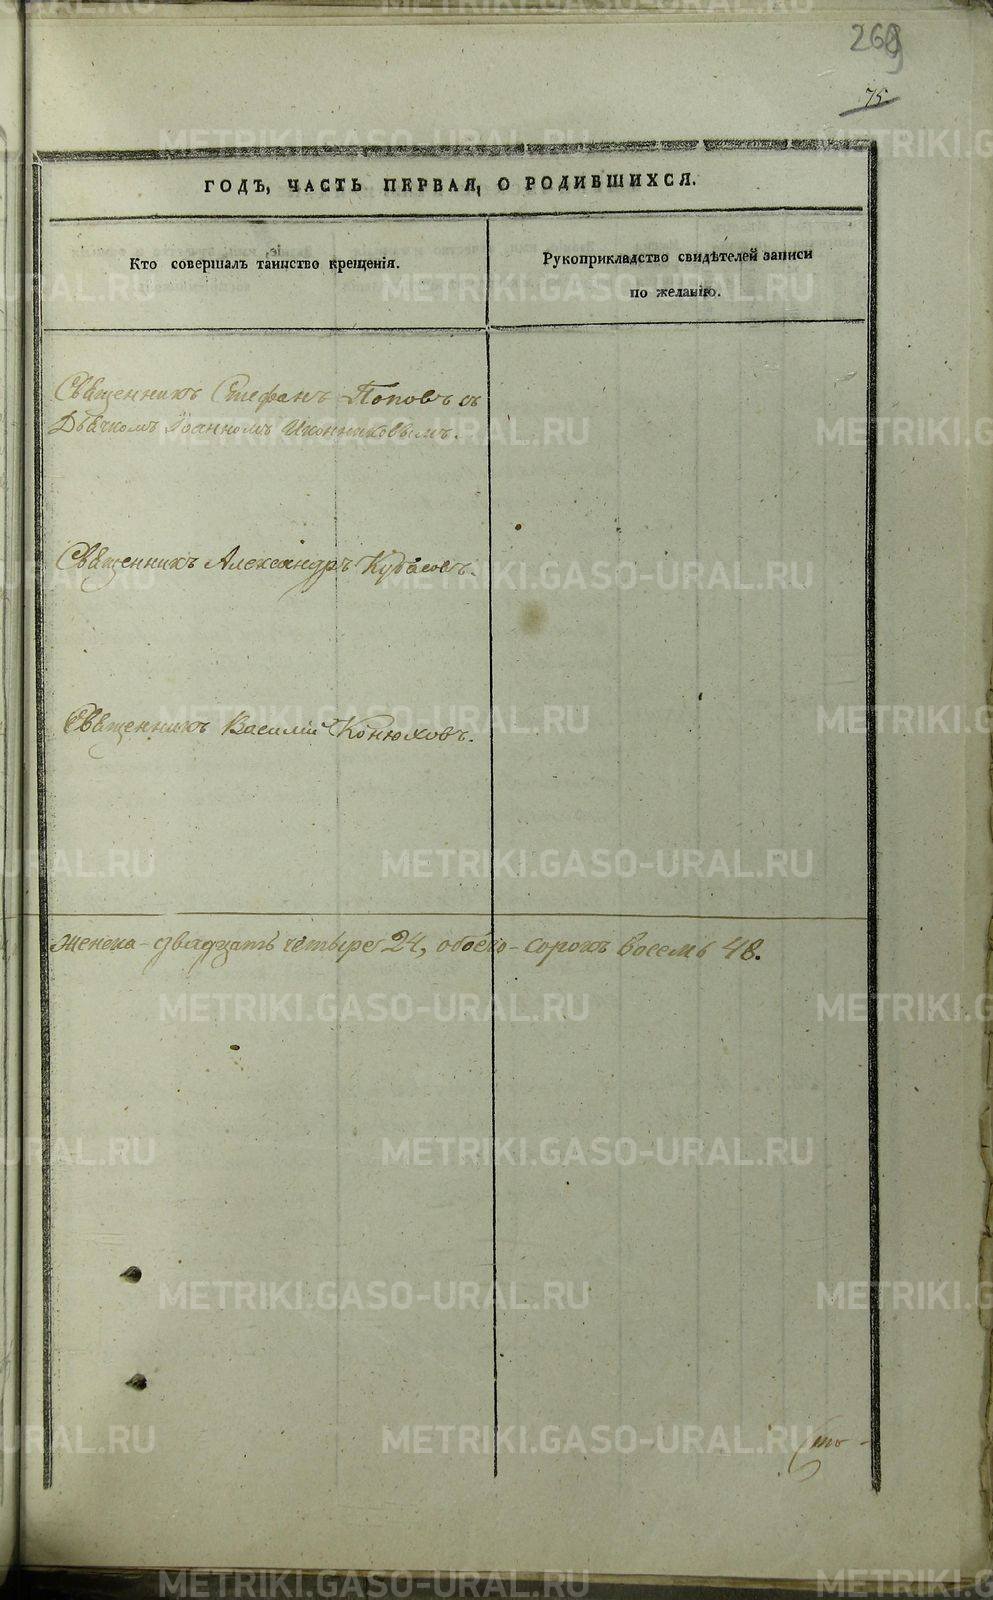 269
75
ГОДЪ, ЧАСТЬ ПЕРВАЯ, О РОДИВШИХСЯ.
Кто совершалъ таинство крещенія.
Рукоприкладство свидѣтелей записи
по желанію.
Священникъ Стефанъ Поповъ съ
Дьячкомъ Іоанномъ Иконниковымъ.
Священникъ Александръ Кубасовъ.
Священникъ Василій Конюховъ.
женска - двадцать четыре 24, обоего - сорокъ восемь 48.
METRIKI.GASO-URAL.RU